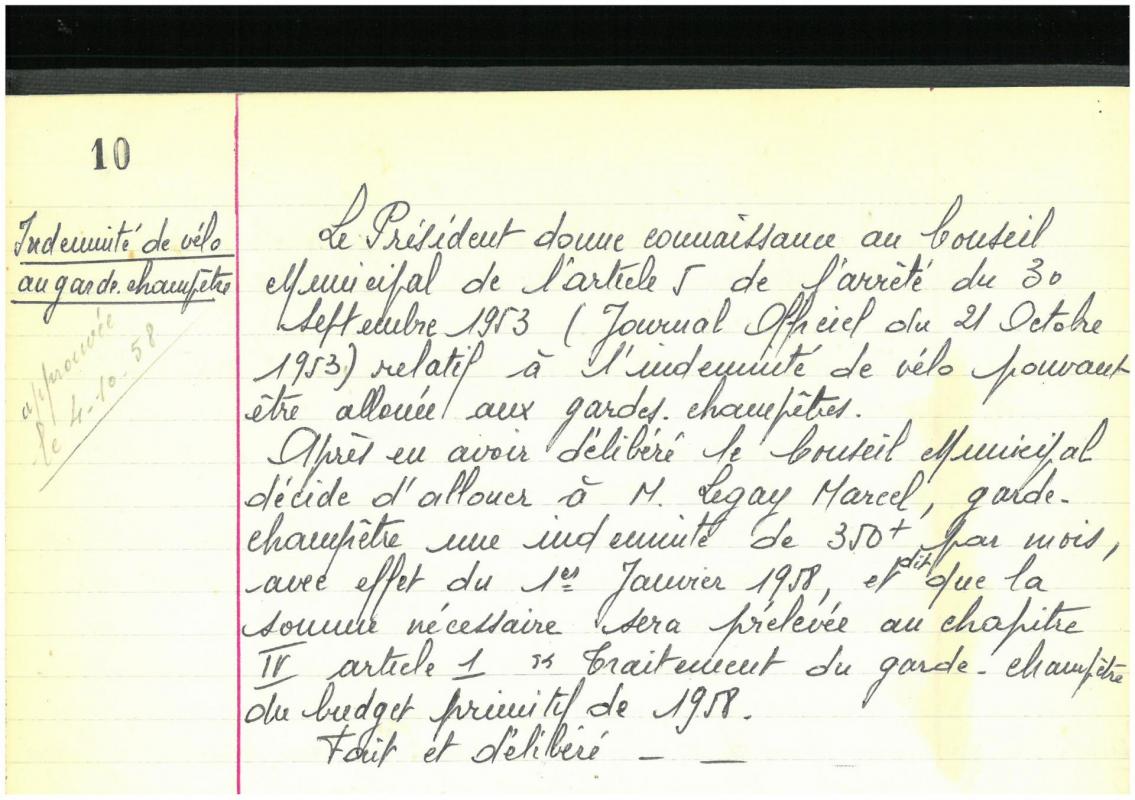 10
Indemnité de vélo
au garde-champêtre
approuvée
le 4-10-58
Le Président donne connaissance au Conseil
Municipal de l'article 5 de l'arrêté du 30
Septembre 1953 (Journal Officiel du 21 Octobre
1953) relatif à l'indemnité de vélo pouvant
être allouée aux gardes-champêtres.
Après en avoir délibéré le Conseil Municipal
décide d'allouer à M. Legay Marcel, garde-
champêtre une indemnité de 350f par mois,
avec effet du 1er Janvier 1958, et dit que la
somme nécessaire sera prélevée au chapitre
IV article 1 Traitement du garde-champêtre
du budget primitif de 1958.
Fait et délibéré — —